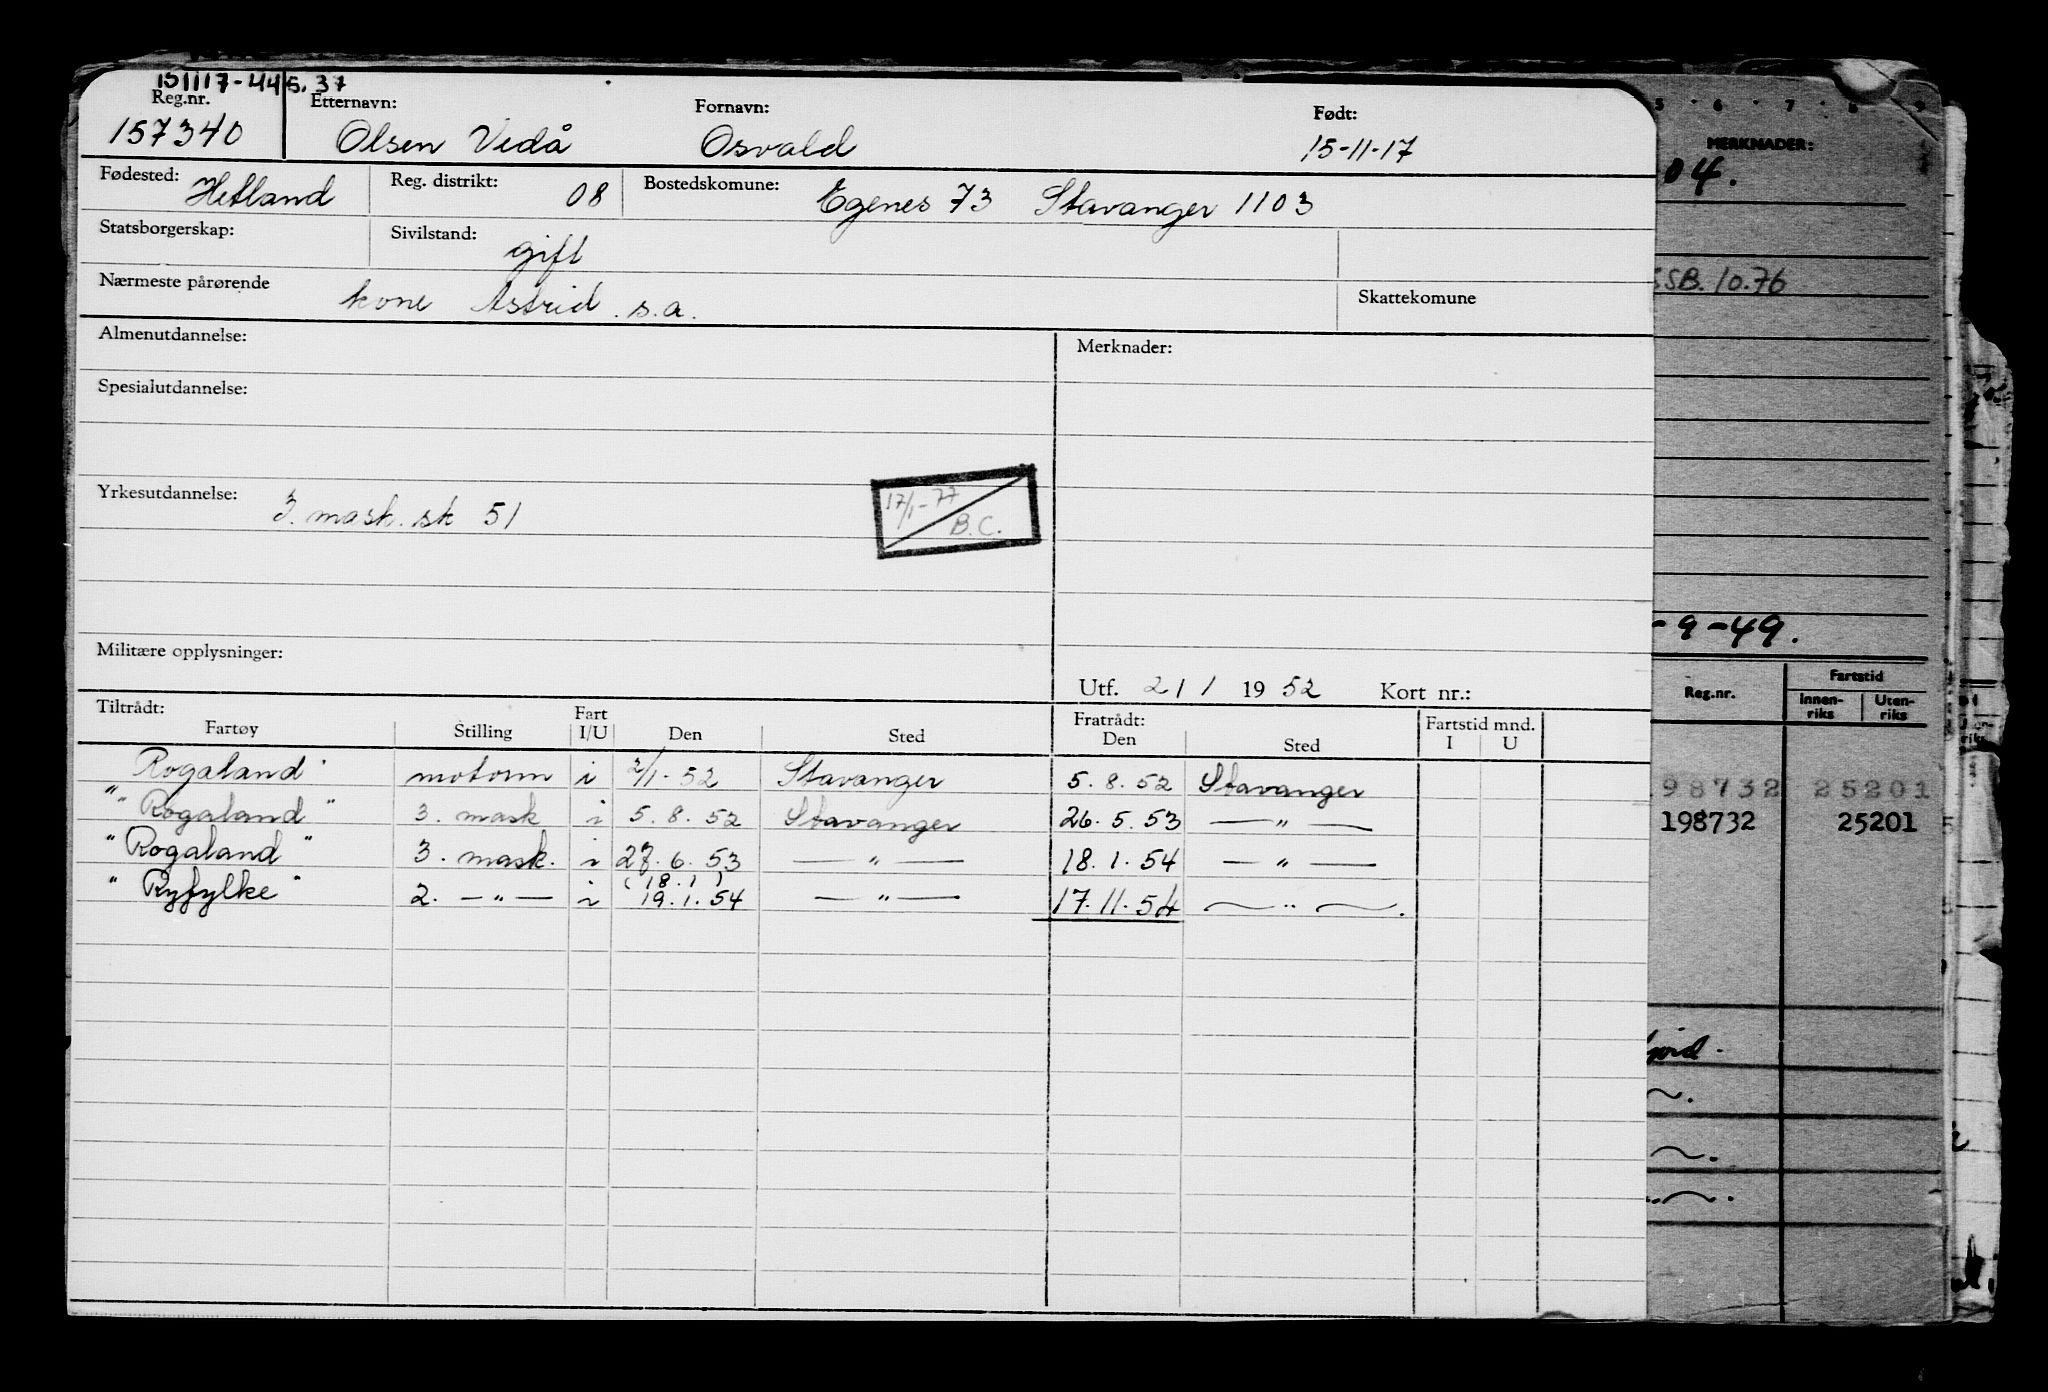 151117-445.37
Reg.nr. Etternavn: Fornavn: Født:
157340 Olsen Vedå Osvald 15-11-17
Fødested: Hetland Reg. distrikt: 08 Bostedskomune: Egenes 73 Stavanger 1103
Statsborgerskap: Sivilstand: gift
Nærmeste pårørende kone Astrid s.a. Skattekomune
Almenutdannelse: Merknader:
Spesialutdannelse:
Yrkesutdannelse: 3. mask. sk 51
17/1-77
B.C.
Militære opplysninger:
Utf. 2/1 1952 Kort nr.:
Tiltrådt: Fratrådt:
Fartøy Stilling Fart I/U Den Sted Den Sted Fartstid mnd. I U
Rogaland" motorm i 2/1-52 Stavanger 5.8.52 Stavanger
"Rogaland" 3. mask i 5.8.52 Stavanger 26.5.53 — " —
"Rogaland" 3. mask. i 27.6.53 — " — 18.1.54 — " —
(18.1)
"Ryfylke" 2. — " — i 19.1.54 — " — 17.11.54 — " —.
5 6 7 8 9
MERKNADER:
04.
SSB. 10.76
-9-49.
Reg.nr. Fartstid
Innenriks Utenriks
98732 25201
198732 25201